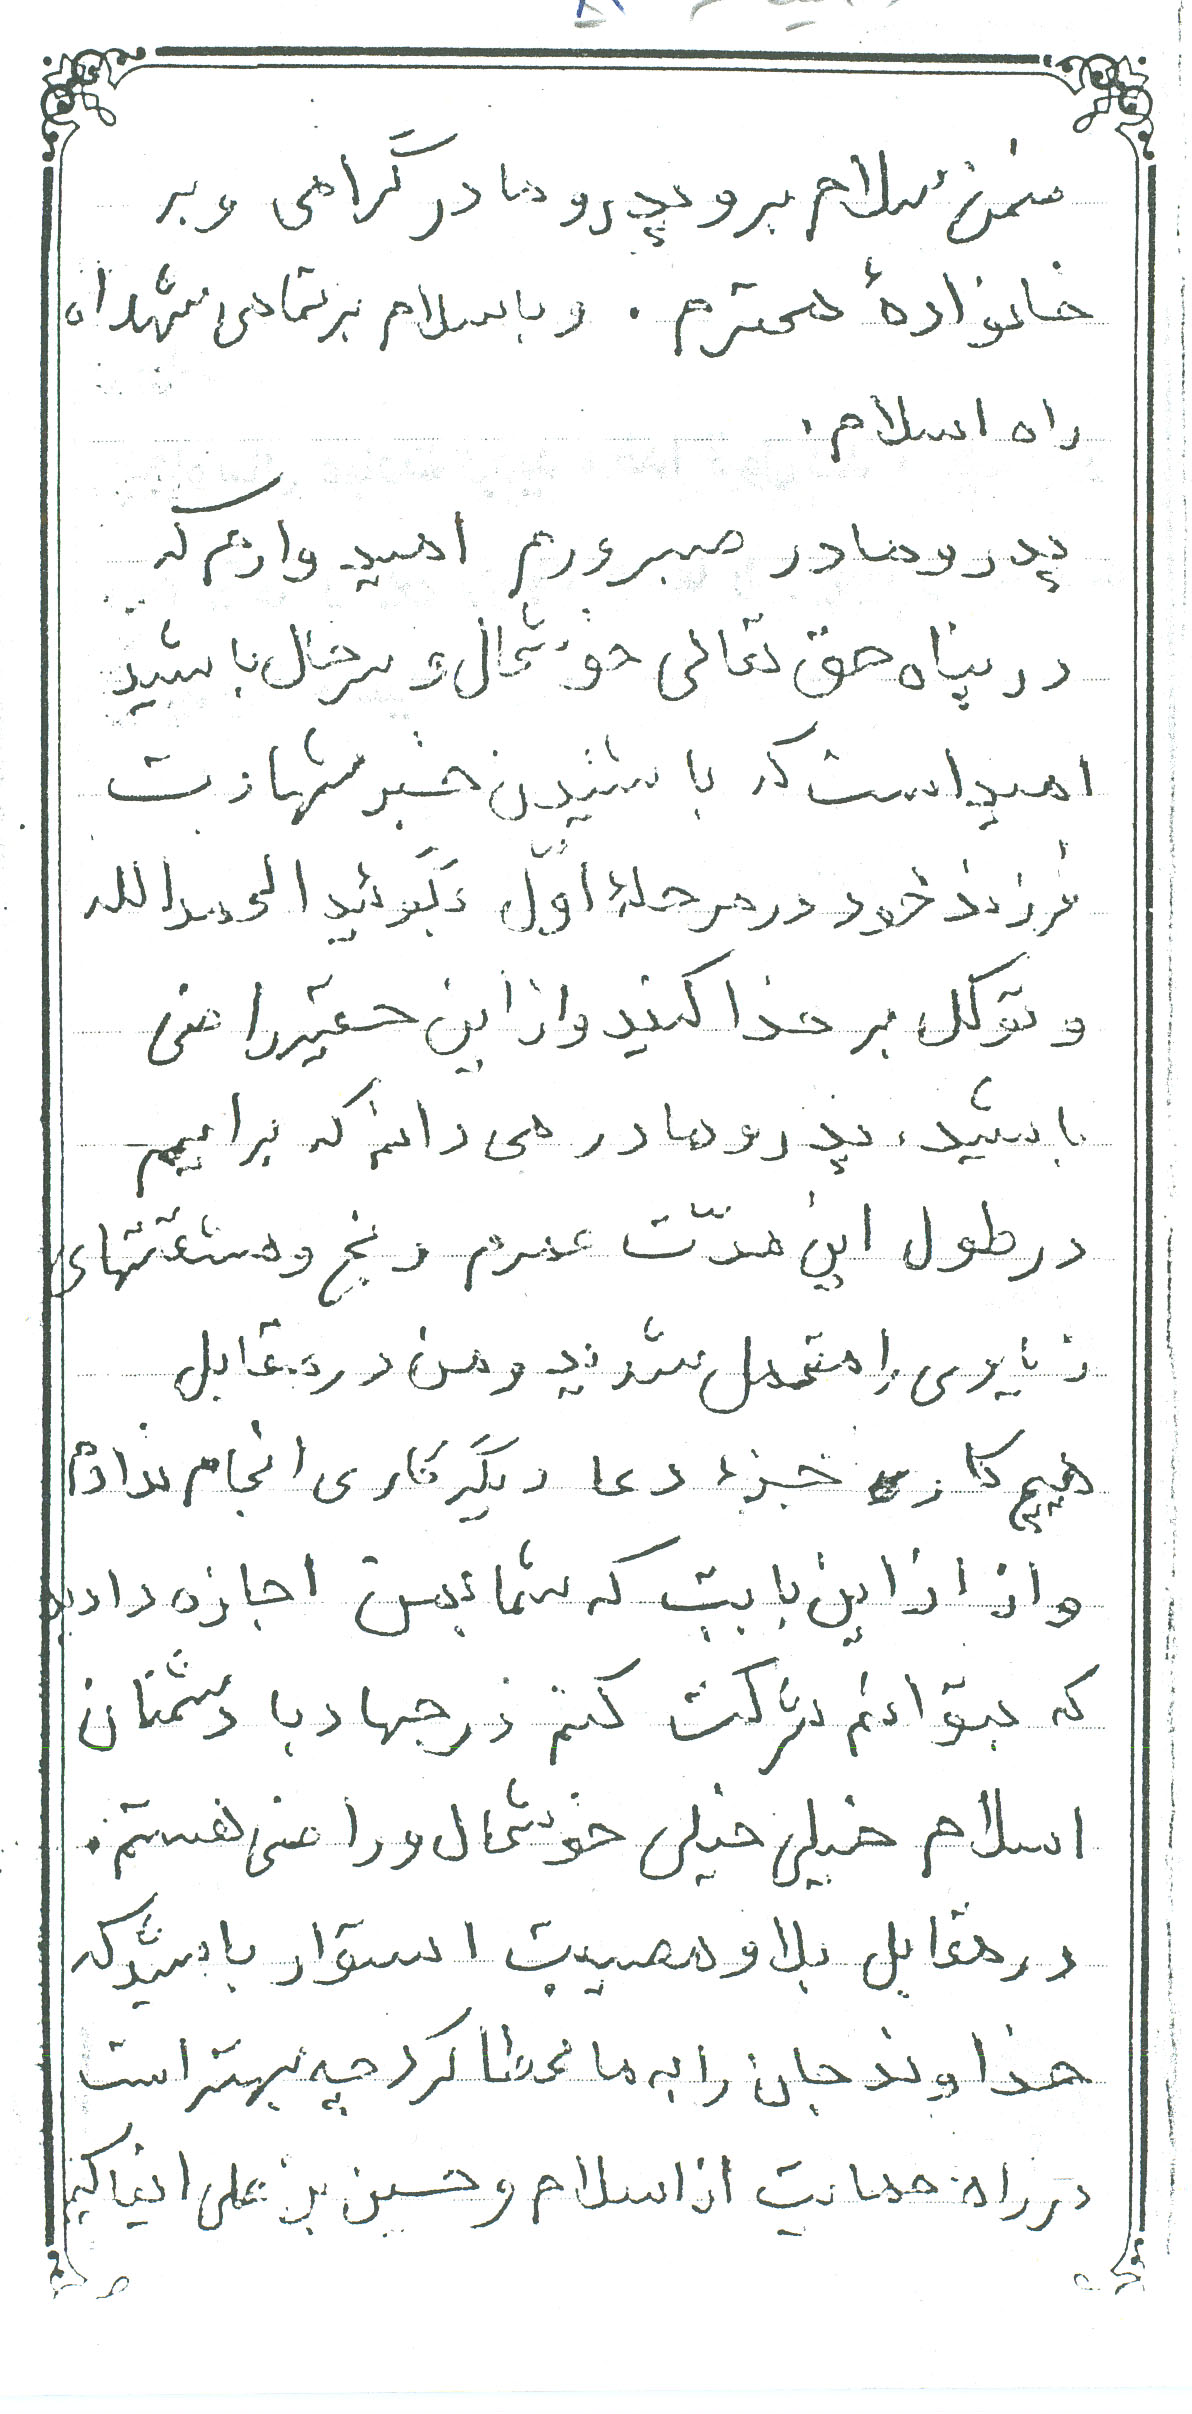 ضمن سلام بر و پدر و مادر گرامی و بر
خانوادهٔ محترم . و با سلام بر تمامی شهداه
راه اسلام .
پدر و مادر صبرورم امیدوارم که
در پناه حق تعالی خوشحال و سرحال باشید
امید است که با شنیدن خبر شهادت
فرزند خود در مرحلهٔ اوّل بگوئید الحمدالله
و توکل بر خدا کنید و از این حقیر راضی
باشید، پدر و مادر می دانم که برایم
در طول این مدّت عمرم رنج و مشقتهای
زیادی را متحمل شدید و من در مقابل
هیچ کاری جزء دعا دیگر کاری انجام ندادم
و از از این بابت که شما بمن اجازه دادید
که بتوانم شرکت کنم در جهاد با دشمنان
اسلام خیلی خیلی خوشحال و راضی هستم .
در مقابل بلا و مصیبت استوار باشید که
خداوند جان را به ما عطا کرد چه بهتر است
در راه حمایت از اسلام و حسین بن علی